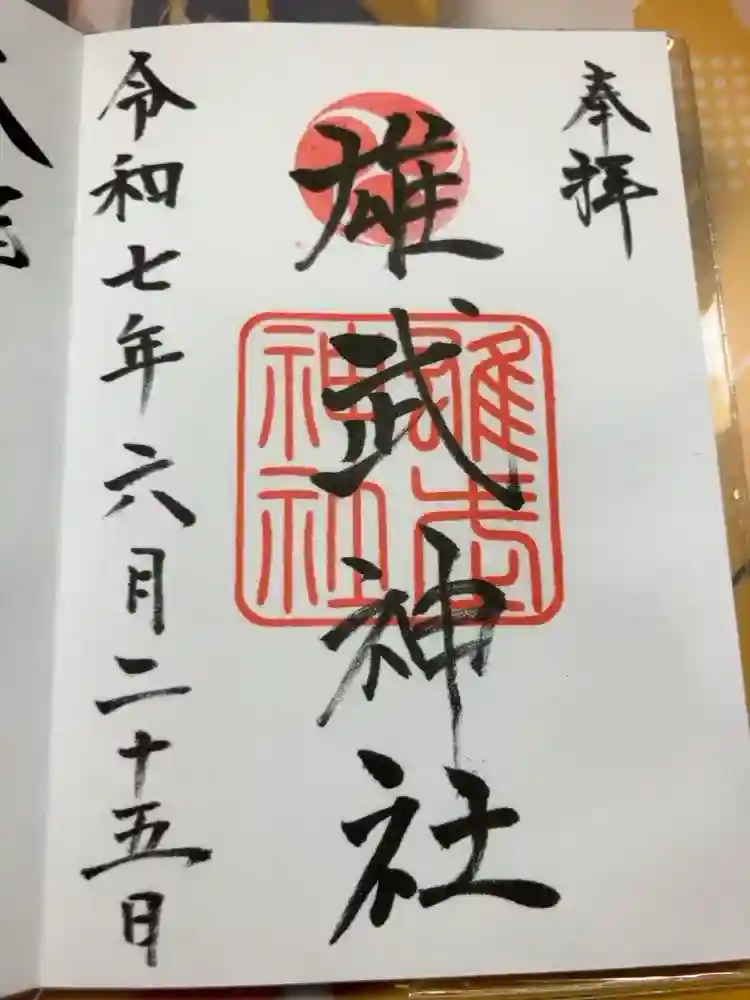 奉拝
雄武神社
雄武神社
令和七年六月二十五日